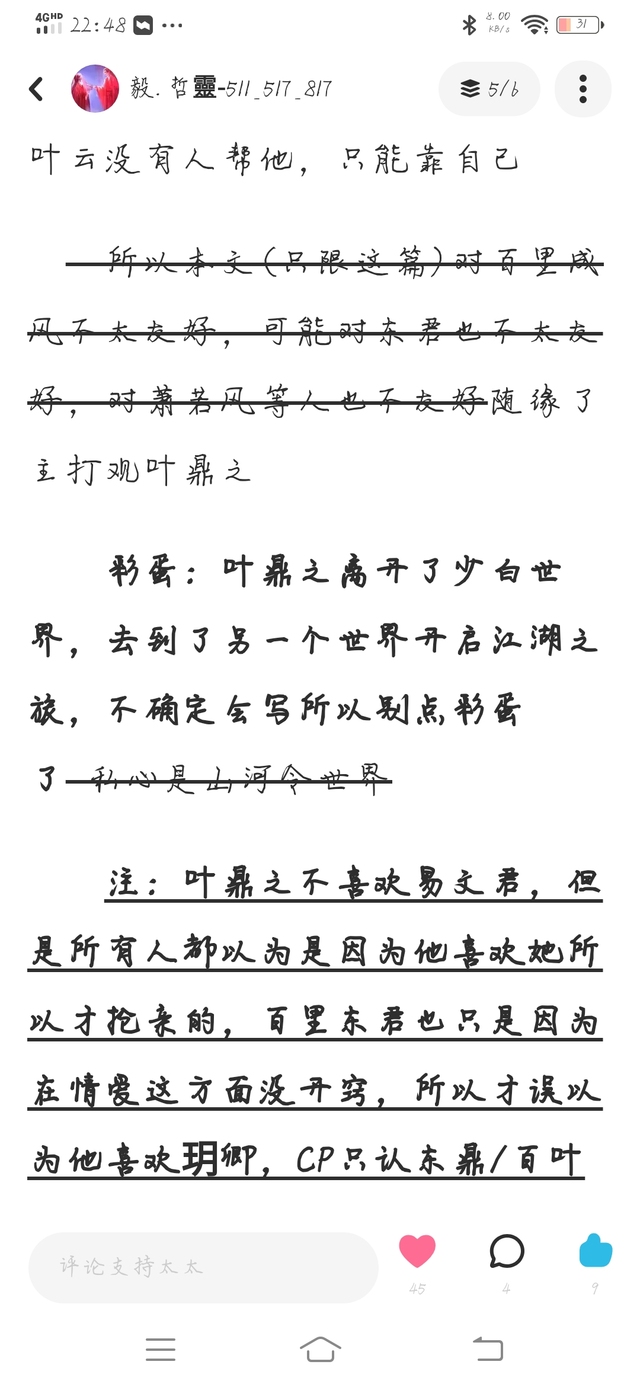 4G HD 22:48 ... 8.00 KB/s 31
毅.哲靈-511_517_817 5/6
叶云没有人帮他，只能靠自己
所以本文(只限这篇)对百里成
风不太友好，可能对东君也不太友
好，对萧若风等人也不友好随缘了
主打观叶鼎之
彩蛋：叶鼎之离开了少白世
界，去到了另一个世界开启江湖之
旅，不确定会写所以别点彩蛋
了 私心是山河令世界
注：叶鼎之不喜欢易文君，但
是所有人都以为是因为他喜欢她所
以才抢亲的，百里东君也只是因为
在情爱这方面没开窍，所以才误以
为他喜欢玥卿，CP只认东鼎/百叶
评论支持太太
45 4 9